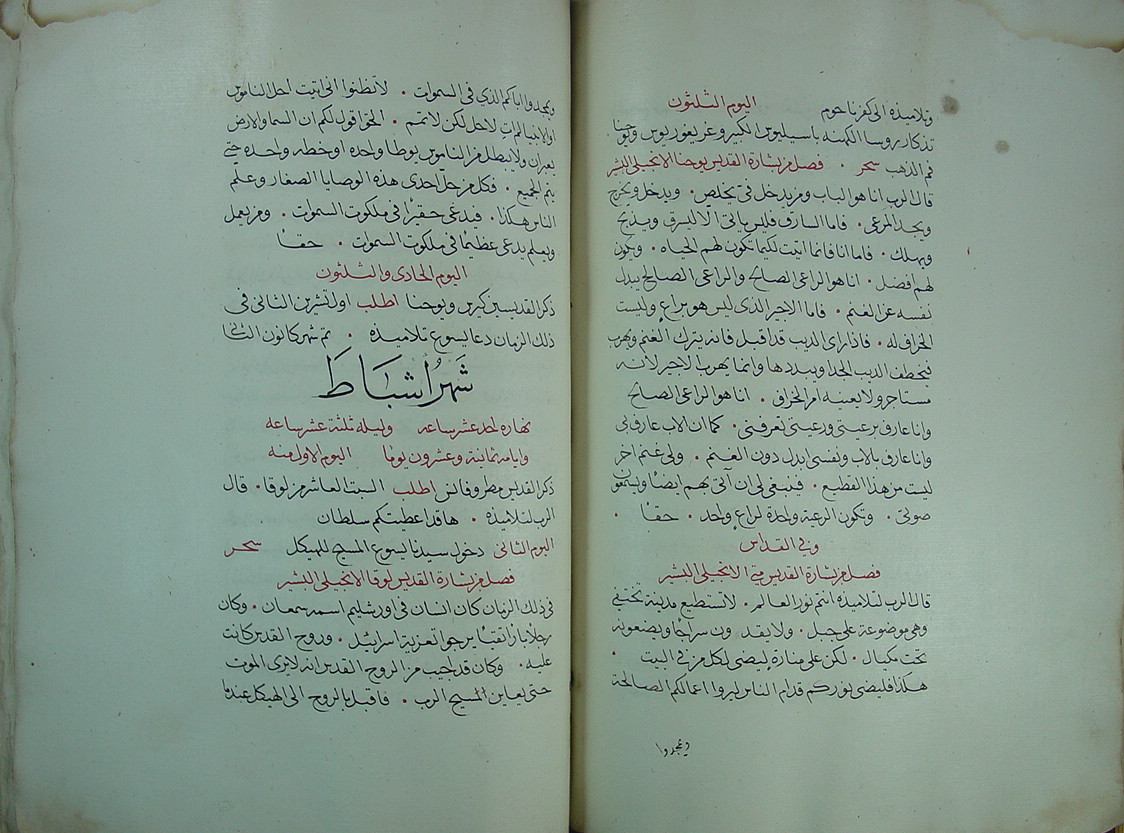 وتلاميذه الى كفرناحوم اليوم الثلثون
تذكار روسا الكهنه باسيليوس الكبير وغريغوريوس ويوحنا
فم الذهب سحر · فصل من بشارة القديس يوحنا الانجيلي البشير
قال الرب انا هو الباب ومن يدخل في يخلص · ويدخل ويخرج
ويجد المرعى · فاما السارق فليس ياتي الا ليسرق ويذبح
ويهلك · فاما انا فانما اتيت لكيما تكون لهم الحياه · ويكون
لهم افضل · انا هو الراعي الصالح والراعي الصالح يبدل
نفسه عن الغنم · فاما الاجير الذي ليس هو براع وليست
الخراف له · فاذا راى الديب قد اقبل فانه يترك الغنم ويهرب
فيخطف الديب الخراف ويبددها وانما يهرب الاجير لانه
مستاجر ولا يعينه امر الخراف · انا هو الراعي الصالح
وانا عارف برعيتي ورعيتي تعرفني · كما ان الاب عارف بي
وانا عارف بالاب ونفسي ابدل دون الغنم · ولي غنم اخر
ليست من هذا القطيع · فينبغي لي ان آتي بهم ايضا ويسمعون
صوتي · وتكون الرعية واحدة لراع واحد · حقا ·
وفي القداس
فصل من بشارة القديس متى الانجيلي البشير
قال الرب لتلاميذه انتم نور العالم · لا تستطيع مدينة تختفي
وهي موضوعة على جبل · ولا يقدون سراجا ويضعونه
تحت مكيال · لكن على منارة ليضي لكل من في البيت ·
هكذا فليضي نوركم قدام الناس ليروا اعمالكم الصالحة
ويمجدوا
ويمجدوا اباكم الذي في السموات · لا تظنوا اني اتيت لحل الناموس
او الانبيا لم ات لاحل لكن لاتمم · الحق اقول لكم ان السما والارض
يعبران ولا يبطل من الناموس يوطا واحده او خطه واحده حتى
يتم الجميع · فكل من حل احدى هذه الوصايا الصغار وعلم
الناس هكذا · فيدعى حقيرا في ملكوت السموات · ومن يعمل
ويعلم يدعى عظيما في ملكوت السموات · حقا
اليوم الحادي والثلثون
ذكر القديسين كيرس ويوحنا اطلب اول تشرين الثاني في
ذلك الزمان دعا يسوع تلاميذه · تم شهر كانون الثاني
شهر اشباط
نهاره احد عشر ساعه وليله ثلثة عشر ساعه
وايامه ثمانية وعشرون يوما اليوم الاول منه
ذكر القديس مطروفانس اطلب السبت العاشر من لوقا · قال
الرب لتلاميذه · ها قد اعطيتكم سلطان
اليوم الثاني دخول سيدنا يسوع المسيح للهيكل سحر
فصل من بشارة القديس لوقا الانجيلي البشير
في ذلك الزمان كان انسان في اورشليم اسمه سمعان · وكان
رجلا بارا تقيا يرجوا تعزية اسرائيل · وروح القدس كانت
عليه · وكان قد اجيب من الروح القدس انه لا يرى الموت
حتى يعاين المسيح الرب · فاقبل بالروح الى الهيكل عندما